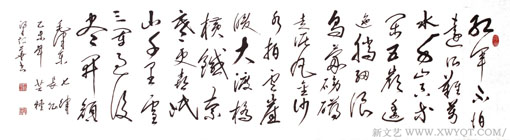 红军不怕
远征难万
水千山只等
闲五岭逶
迤腾细浪
乌蒙磅礴
走泥丸金沙
水拍云崖
暖大渡桥
横铁索
寒更喜岷
山千里雪
三军过后
尽开颜
毛泽东 七律
长征
乙未年
新文艺 www.XWYQT.COM